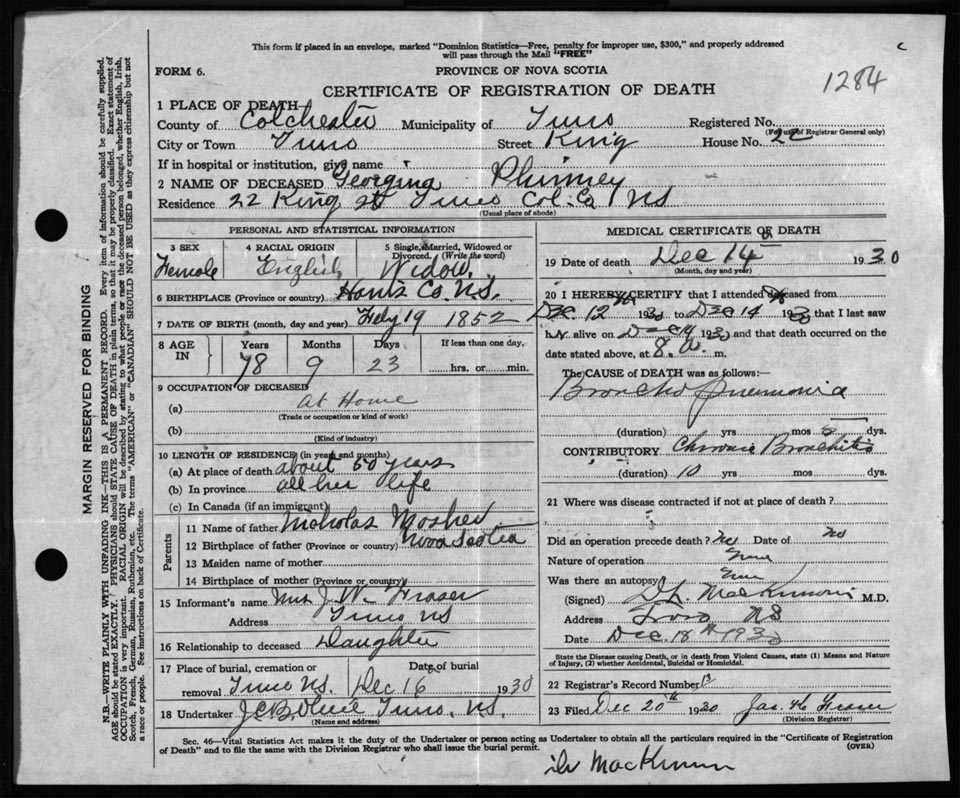 This form if placed in an envelope, marked "Dominion Statistics—Free, penalty for improper use, $300," and properly addressed
will pass through the Mail "FREE"
FORM 6.
PROVINCE OF NOVA SCOTIA
1284
CERTIFICATE OF REGISTRATION OF DEATH
1 PLACE OF DEATH
County of Colchester Municipality of Truro Registered No.
(For use of Registrar General only)
City or Town Truro Street King House No. 22
If in hospital or institution, give name
2 NAME OF DECEASED Georgina Phinney
Residence 22 King St Truro Col. Co NS
(Usual place of abode)
PERSONAL AND STATISTICAL INFORMATION
3 SEX 4 RACIAL ORIGIN 5 Single, Married, Widowed or
Divorced. (Write the word)
Female English Widow.
6 BIRTHPLACE (Province or country) Hants Co. N.S.
7 DATE OF BIRTH (month, day and year) Feby 19 1852
8 AGE IN Years Months Days If less than one day.
78 9 23 hrs. or min.
9 OCCUPATION OF DECEASED
(a) At Home
(Trade or occupation or kind of work)
(b)
(Kind of industry)
10 LENGTH OF RESIDENCE (in years and months)
(a) At place of death about 50 years
(b) In province all her life
(c) In Canada (if an immigrant)
Parents
11 Name of father Nicholas Mosher
12 Birthplace of father (Province or country) Nova Scotia
13 Maiden name of mother
14 Birthplace of mother (Province or country)
15 Informant's name Mrs J. W. Fraser
Address Truro NS
16 Relationship to deceased Daughter
17 Place of burial, cremation or Date of burial
removal Truro NS. Dec 16 1930
18 Undertaker Truro. N.S.
(Name and address)
MEDICAL CERTIFICATE OF DEATH
19 Date of death Dec 14 1930
(Month, day and year)
20 I HEREBY CERTIFY that I attended deceased from
Dec 12th 1930 to Dec 14 1930 that I last saw
h er alive on Dec 14 1930 and that death occurred on the
date stated above, at 8. a. m.
The CAUSE of DEATH was as follows:—
Broncho pneumonia
(duration) yrs mos 8 dys.
CONTRIBUTORY Chronic Bronchitis
(duration) 10 yrs mos dys.
21 Where was disease contracted if not at place of death?
Did an operation precede death? no Date of no
Nature of operation None
Was there an autopsy None
(Signed) MacKinnon M.D.
Address Truro NS
Date Dec. 18th 1930
State the Disease causing Death, or in death from Violent Causes, state (1) Means and Nature
of Injury, (2) whether Accidental, Suicidal or Homicidal.
22 Registrar's Record Number
23 Filed Dec 20th 1930 Jas. H. Fraser
(Division Registrar)
Sec. 46—Vital Statistics Act makes it the duty of the Undertaker or person acting as Undertaker to obtain all the particulars required in the "Certificate of Registration
of Death" and to file the same with the Division Registrar who shall issue the burial permit. (OVER)
Dr MacKinnon
MARGIN RESERVED FOR BINDING
N.B.—WRITE PLAINLY WITH UNFADING INK—THIS IS A PERMANENT RECORD. Every item of information should be carefully supplied.
AGE should be stated EXACTLY. PHYSICIANS should STATE CAUSE OF DEATH in plain terms, so that it may be properly classified. Exact statement of
OCCUPATION is very important. RACIAL ORIGIN will be described by stating to what people or race the deceased person belonged, whether English, Irish,
Scotch, French, German, Russian, Ruthenian, etc. The terms "AMERICAN" or "CANADIAN" SHOULD NOT BE USED as they express citizenship but not
a race or people. See instructions on back of Certificate.